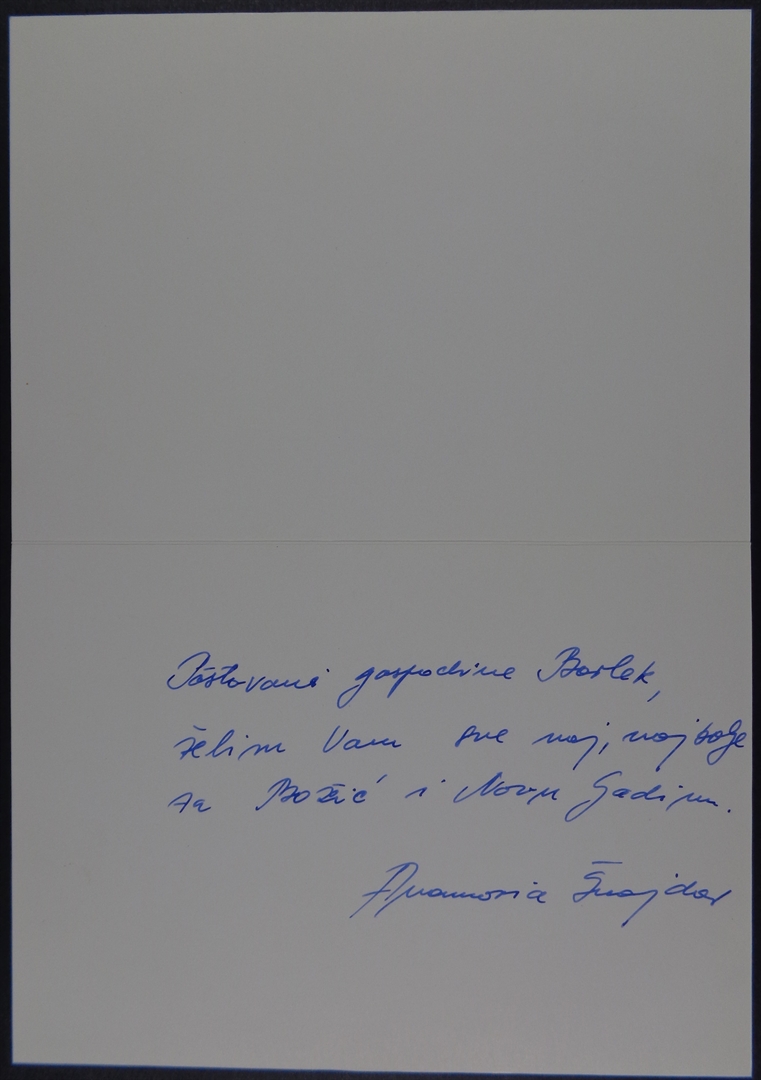 Poštovani gospodine Borlek,
želim Vam sve naj, najbolje
za Božić i Novu Godinu.
Anamaria Šnajdar